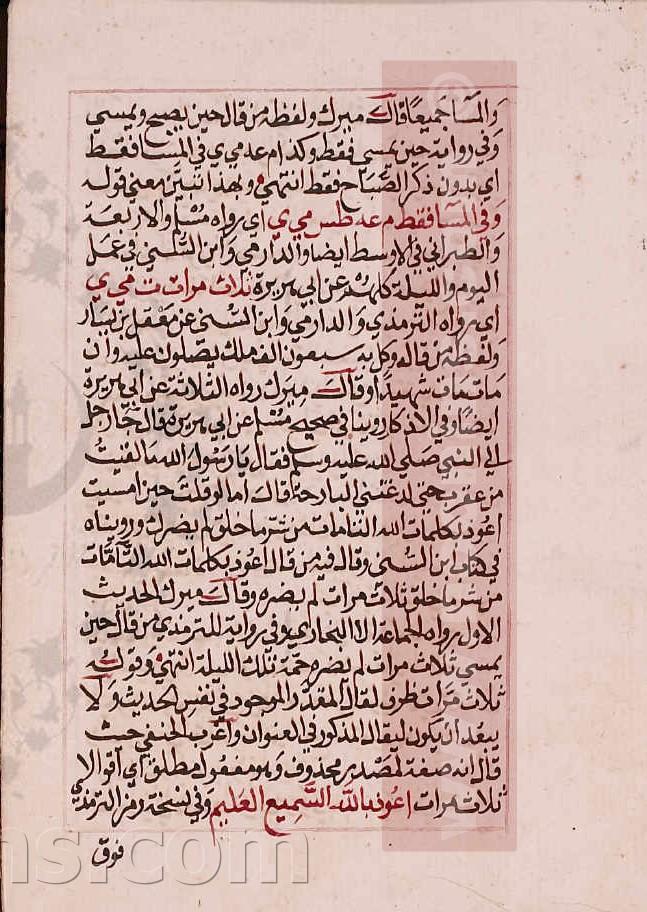 والمسا جميعا قال ميرك ولفظه من قال حين يصبح ويمسي
وفي رواية حين يمسي فقط وكذا م عه مي ي في المسا فقط
اي بدون ذكر الصباح فقط انتهي وبهذا تبين معني قوله
وفي المسا فقط م عه طس مي ي اي رواه مسلم والاربعة
والطبراني في الاوسط ايضا والدارمي وابن السني في عمل
اليوم والليلة كلهم عن ابي هريرة ثلاث مرات ت مي ي
اي رواه الترمذي والدارمي وابن السني عن معقل بن يسار
ولفظه من قاله وكل به سبعون الف ملك يصلون عليه وان
مات مات شهيدا وقال ميرك رواه الثلاثة عن ابي هريرة
ايضا وفي الاذكار روينا في صحيح مسلم عن ابي هريرة قال جا رجل
الي النبي صلي الله عليه وسلم فقال يا رسول الله ما لقيت
من عقرب لدغتني البارحة قال اما لو قلت حين امسيت
اعوذ بكلمات الله التامات من شر ما خلق لم يضرك ورويناه
في كتاب ابن السني وقال فيه من قال اعوذ بكلمات الله التامات
من شر ما خلق ثلاث مرات لم يضره وقال ميرك الحديث
الاول رواه الجماعة الا البخاري وفي رواية للترمذي من قال حين
يمسي ثلاث مرات لم يضره حمة تلك الليلة انتهي وقوله
ثلاث مرات ظرف لقال المقدر الموجود في نفس الحديث ولا
يبعد ان يكون ليقال المذكور في العنوان واغرب الحنفي حيث
قال انه صفة لمصدر محذوف وهو مفعول مطلق اي اقوالا
ثلاث مرات اعوذ بالله السميع العليم وفي نسخة رمز الترمذي
فوق
ns.com